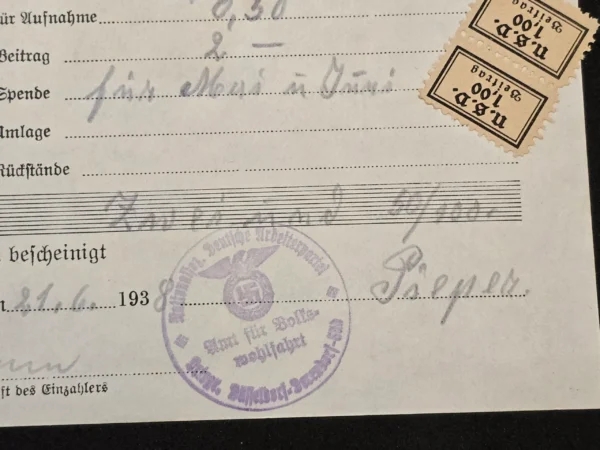 für Aufnahme 0,50
Beitrag 2 —
Spende für Mai u Juni
Umlage
Rückstände
Zwei und 50/100.
bescheinigt
21.6. 1938 Pieper.
ft des Einzahlers
N.S.V.
1,00
Beitrag
N.S.V.
1,00
Beitrag
Nationalsoz. Deutsche Arbeiterpartei
Amt für Volks-
wohlfahrt
Ortsgr. Düsseldorf-